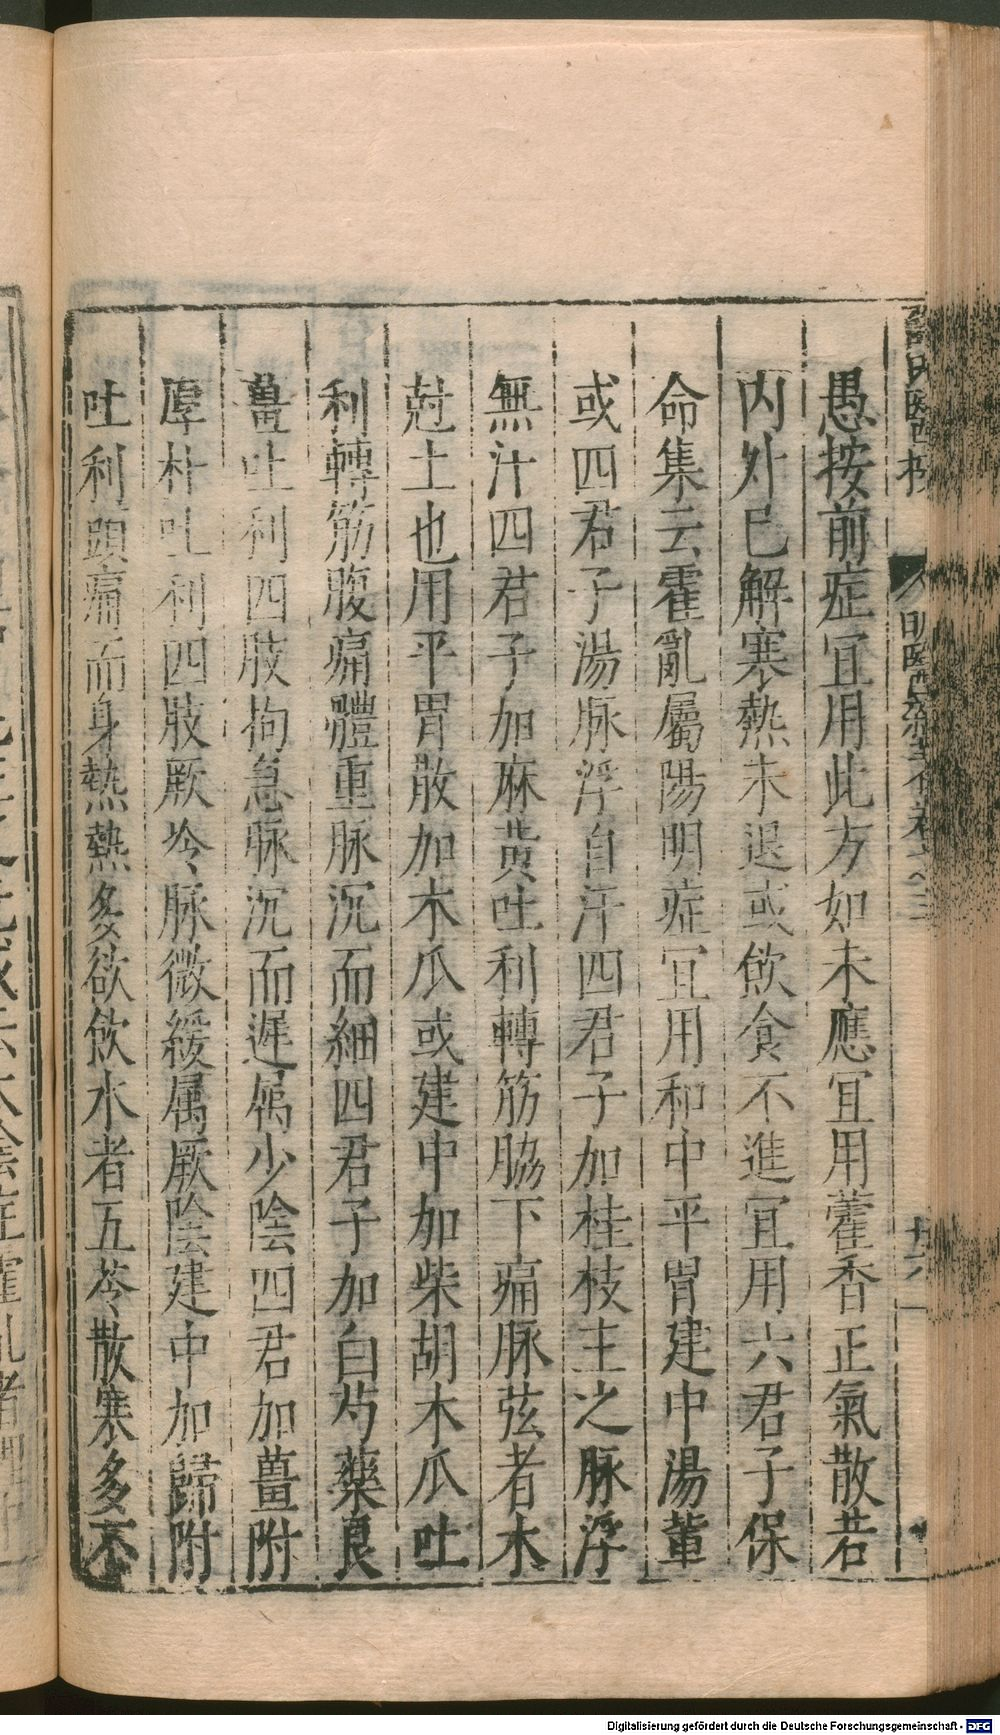 愚按前症宜用此方如未應宜用藿香正氣散若
内外已解寒熱未退或飲食不進宜用六君子保
命集云霍亂屬陽明症宜用和中平胃建中湯軰
或四君子湯脉浮自汗四君子加桂枝主之脉浮
無汗四君子加麻黄吐利轉筋脇下痛脉弦者木
尅土也用平胃散加木瓜或建中加柴胡木瓜吐
利轉筋腹痛體重脉沉而細四君子加白芍藥良
薑吐利四肢拘急脉沉而遲属少陰四君加薑附
厚朴吐利四肢厥冷脉微緩属厥陰建中加歸附
吐利頭痛而身熱熱多欲飲水者五苓散寒多不
Digitalisierung gefördert durch die Deutsche Forschungsgemeinschaft - DFG